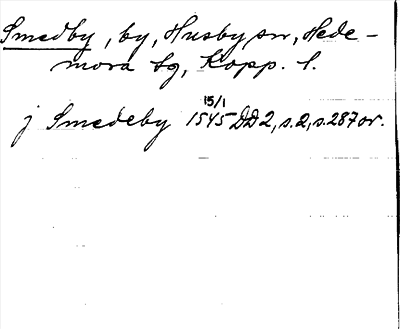 Smedby, by, Husby sn, Hede-
mora tg, Kopp. l.
15/1
j Smedeby 1545 DD2, s.2, s.287 or.